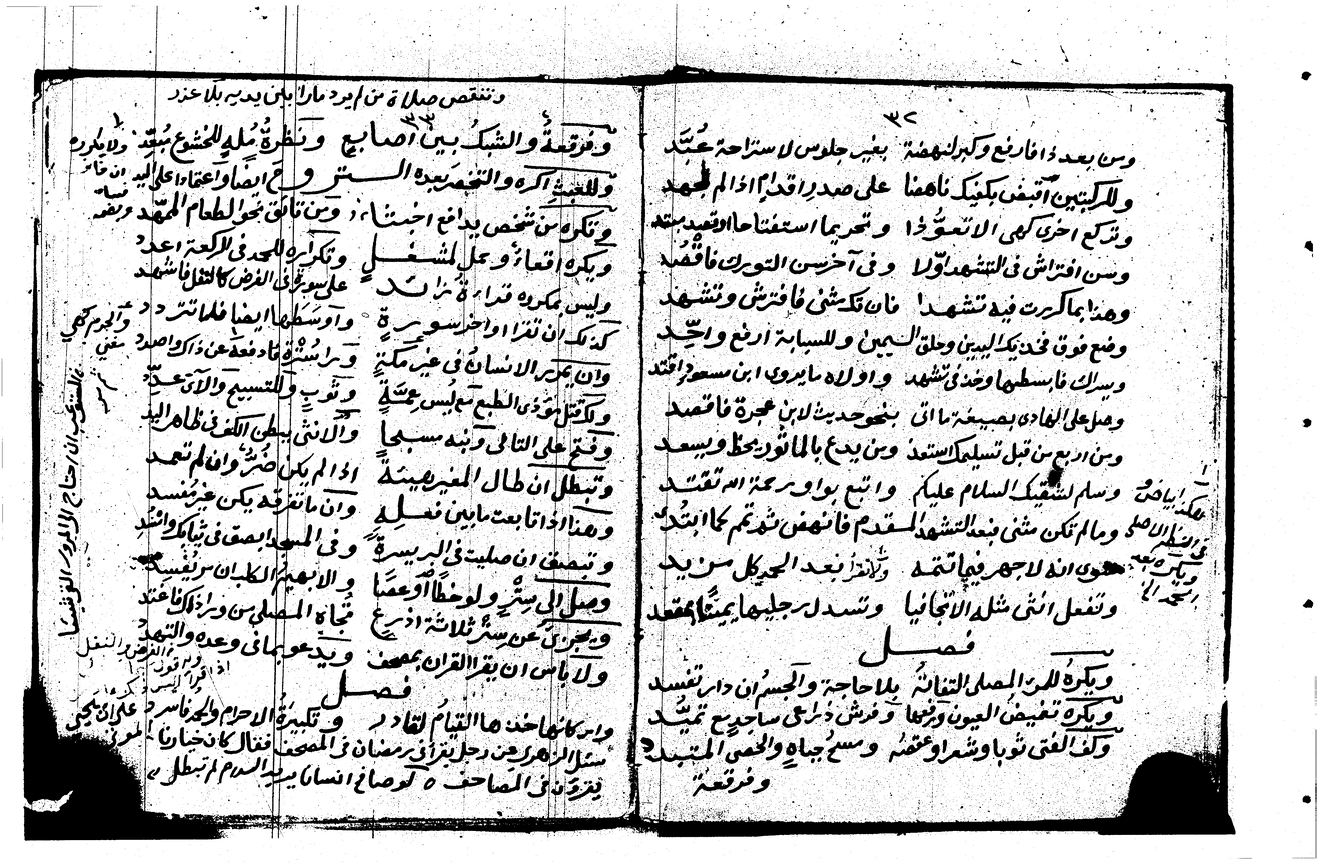 ٣٢
ومن بعد ذا فارفع وكبر لنهضة بغير جلوس لاستراحة عبد
وللركبتين اقبض بكفيك ناهضا على صدر اقدام اذا لم تجهد
وتركع اخرى كهي الا تعوذا وتحريما استفتاحا او تعبد مبتد
وسن افتراش في التشهد اولا وفي آخر سن التورك فاقصد
وهذا بما كررت فيه تشهدا فان تك مثنى فافترش وتشهد
وضع فوق فخذيك اليدين وحلق اليمين وللسبابة ارفع واحد
ويسراك فابسطها وخذ في تشهد واولاه ما يروى ابن مسعود اقتد
وصل على الهادي بصيغة ما اتى بنحو حديث لابن عجرة فاقصد
ومن اربع من قبل تسليمك استعذ ومن يدع بالماثور يحظ ويسعد
وسلم لشقيك السلام عليكم واتبع بواو رحمة الله تقتد
وما لم تكن مثنى فبعد التشهد المقدم فانهض ثم تمم كما ابتدئ
سوى انه لا جهر فيما تتمه ولا تقرأ بعد الحمد كل مزيد
وتفعل انثى مثله الا تجافيا وتسدل رجليها يمينا بمقعد
فصل
ويكره للمرء المصلي التفاته بلا حاجة والجسم ان دار تفسد
ويكره تغميض العيون ورفعها وفرش ذراعي ساجد
ولف الفتى ثوبا وشعرا وعقصه ومسح جباه والحصى المتبدد
وفرقعة
هكذا بياض
في النظم الاصلي
ويكره
الحمد
وتنقص صلاة من لم يرد مارا بين يديه بلا عذر
٣٣
وفرقعة والشبك بين اصابع ونظرة مله للخشوع مبعد
وللعبث اكره والتخصر بعده
وتكره من شخص يدافع اخبثا ومن تائق نحو الطعام الممهد
ويكره اقعاء وحمل لمشغل وتكراره للحمد في الركعة اعدد
وليس بمكروه قراءة زائد على سورة في الفرض كالنفل فاشهد
كذلك ان تقرا اواخر سورة واوسطها ايضا فلما تردد
وان يمرر الانسان في غير مكة ورا سترة فادفعه عن ذاك واصدد
ولا قتل مؤذي الطبع مع لبس عمة وثوب وللتسبيح والآي عدد
وفتح على التالي ونبه مسبحا والانثى ببطن الكف في ظاهر اليد
وتبطل ان طال المغير هيئة اذا لم يكن ضر وان لم تعمد
وهذا اذا تابعت ما بين فعله وان ما تفرقه يكن غير مفسد
وتبصق ان صليت في اليسرة وفي المسجد ابصق في ثيابك وافتد
وصل الى ستر ولو خطا او عصا والا بهيم الكلب ان مر تفسد
ويجزئ عن ستر ثلاثة اذرع تجاه المصلي من ورا ذاك فاعتد
ولا باس ان يقرا القران بمصحف ويدعو بما في وعده والتهدد
فصل
واركانها خذها القيام لقادر وتكبيرة الاحرام والحمد فاسرد
سئل الزهري عن رجل يقرأ في رمضان في المصحف فقال كان خيارنا
يقرؤن في المصاحف ه لو صافح انسانا يريد السلام لم تبطل
ولا يكره